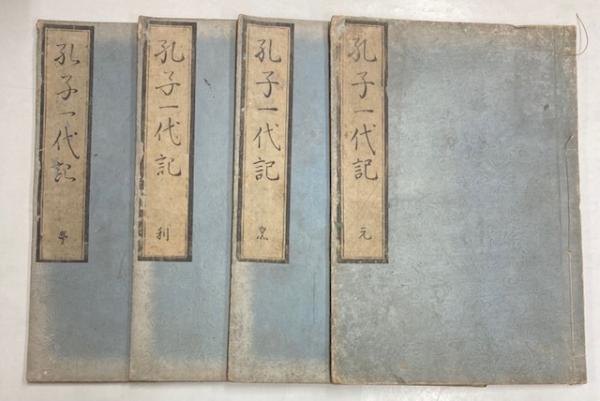 孔子一代記
元
孔子一代記
貞
孔子一代記
利
孔子一代記
亨